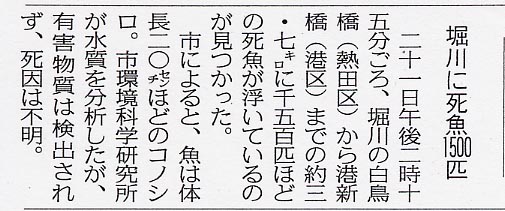 堀川に死魚1500匹
二十一日午後二時十
五分ごろ、堀川の白鳥
橋（熱田区）から港新
橋（港区）までの約三
・七㌔に千五百匹ほど
の死魚が浮いているの
が見つかった。
市によると、魚は体
長二〇㌢ほどのコノシ
ロ。市環境科学研究所
が水質を分析したが、
有害物質は検出され
ず、死因は不明。